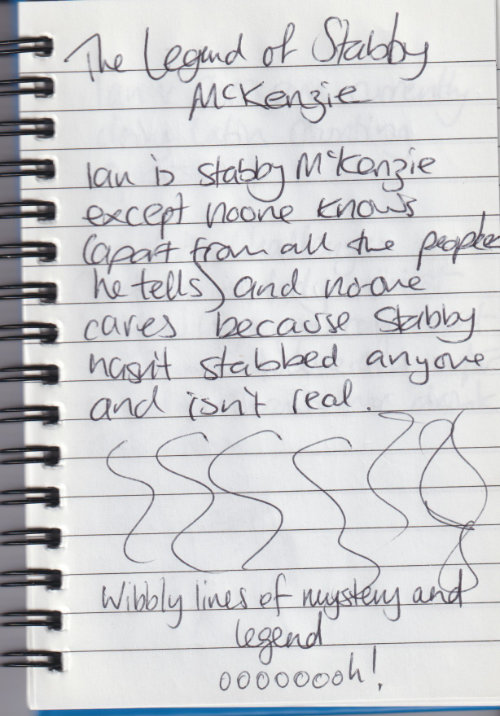 The Legend of Stabby
McKenzie
Ian is stabby McKenzie
except noone knows
(apart from all the people
he tells) and no-one
cares because Stabby
hasn't stabbed anyone
and isn't real.
Wibbly lines of mystery and
legend
ooooooooh!